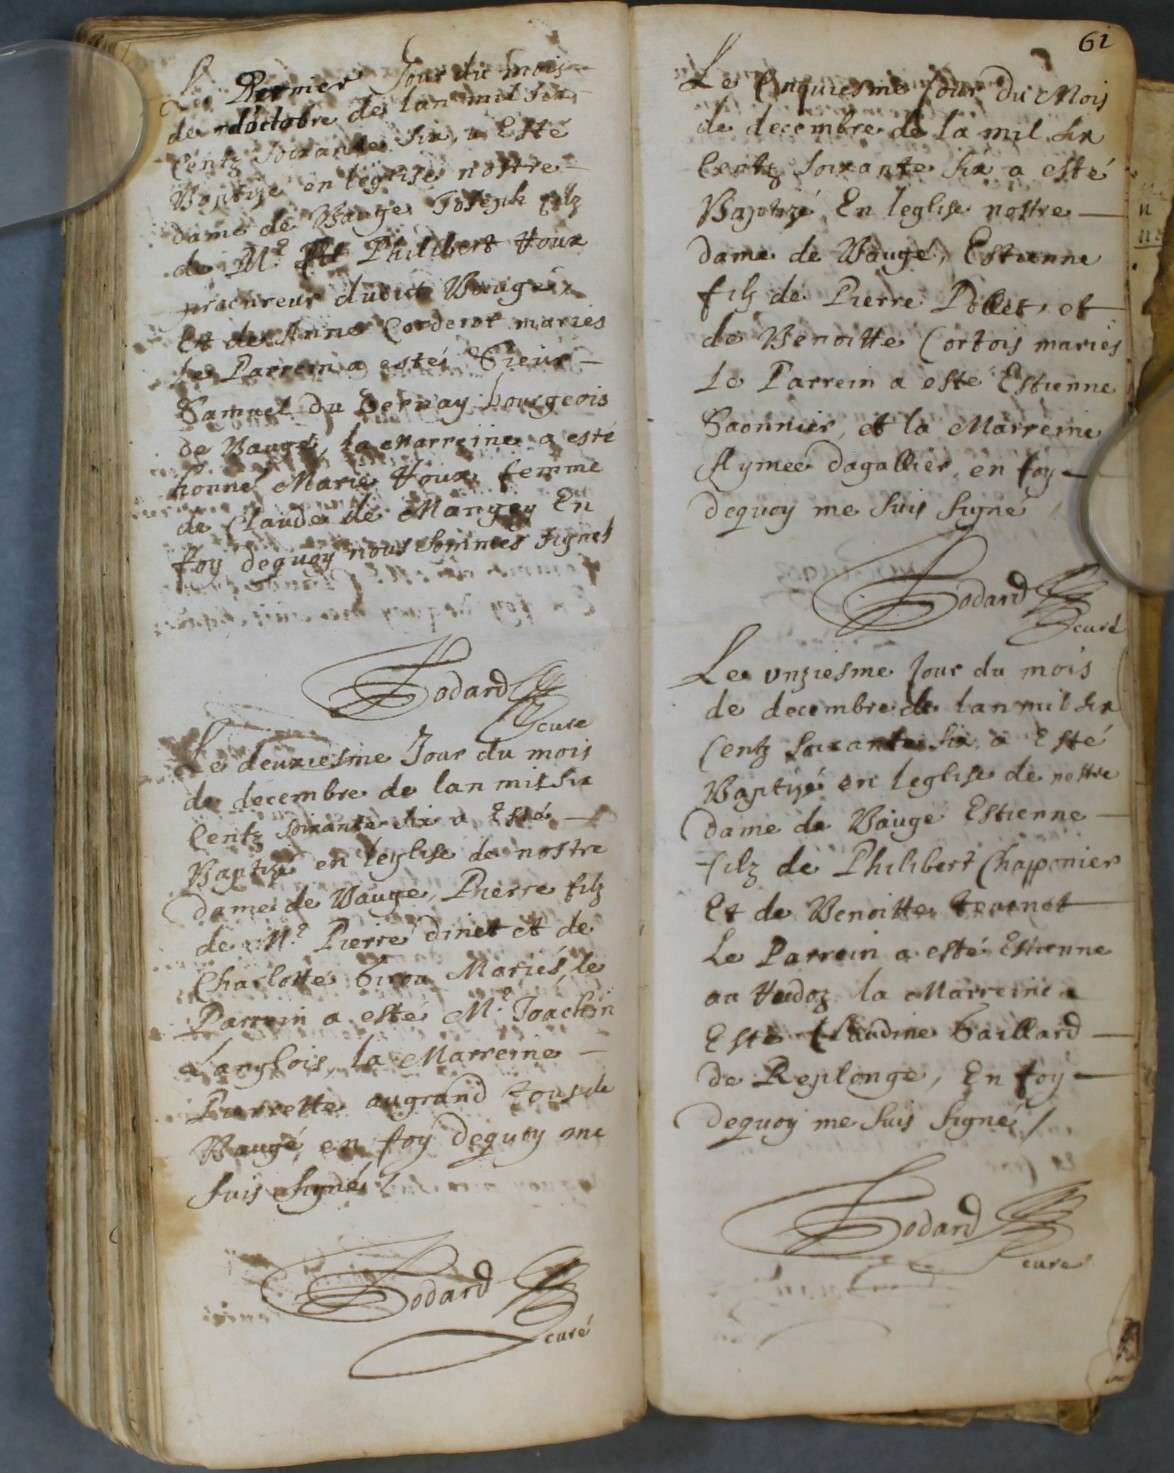 Le Dernier Jour du mois
de doctobre de lan mil six
Centz soixante six, a Esté
Baptize en leglise nostre
dame de Baugé Joseph filz
de Mr Philibert
procureur dudict Baugé,
Et de Anne Corderot maries
Le Parrein a estéi Sieur
Samuel Du bourgeois
de Baugé, la Marreine a esté
honne Marie femme
de Claude de Mangey En
foy dequoy nous sommes signes
Godard
cure
Le deuxiesme Jour du mois
de decembre de lan mil six
Centz soixante six a Esté
Baptizé en leglise de nostre
dame de Baugé, Pierre filz
de Mr Pierre dinet et de
Charlotte Mariés, le
Parrein a esté Mr Joachin
Langlois, la Marreine
Pierrette augrand tous de
Baugé, en foy dequoy me
suis signé /
Godard
curé
61
Le Cinquiesme Jour du Mois
de decembre de la mil six
Centz soixante six a esté
Baptizé, En leglise nostre
dame de Baugé, Estienne
filz de Pierre Pollet, et
de Benoitte Cortois mariés
Le Parrein a esté Estienne
Saonnier, et la Marreine
Aymee dagallier, en foy
dequoy me suis signé /
Godard
curé
Le unziesme Jour du mois
de decembre de lan mil six
Centz soixante six a Esté
Baptizé en leglise de nostre
dame de Baugé Estienne
filz de Philibert Chapponier
Et de Benoitte
Le Parrein a esté Estienne
la Marreine a
Esté Claudine Gaillard
de Replonge, En foy
dequoy me suis signé /
Godard
cure